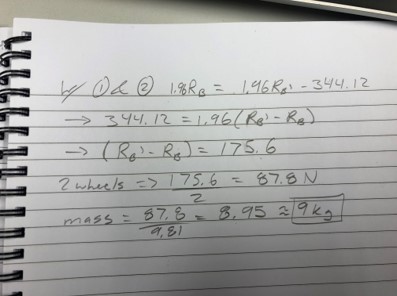 w/ ① & ② 1.96R_B = 1.96R_B' - 344.12
→ 344.12 = 1.96(R_B' - R_B)
→ (R_B' - R_B) = 175.6
2 wheels => 175.6/2 = 87.8 N
mass = 87.8/9.81 = 8.95 ≈ 9kg